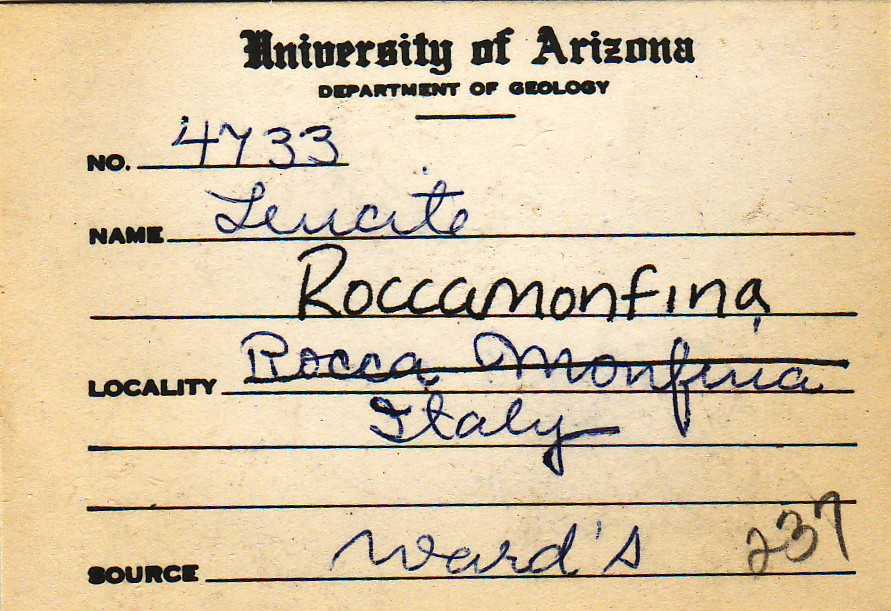 University of Arizona
DEPARTMENT OF GEOLOGY
NO. 4733
NAME Leucite
Roccamonfina
LOCALITY Rocca Monfina
Italy
SOURCE Ward's 237